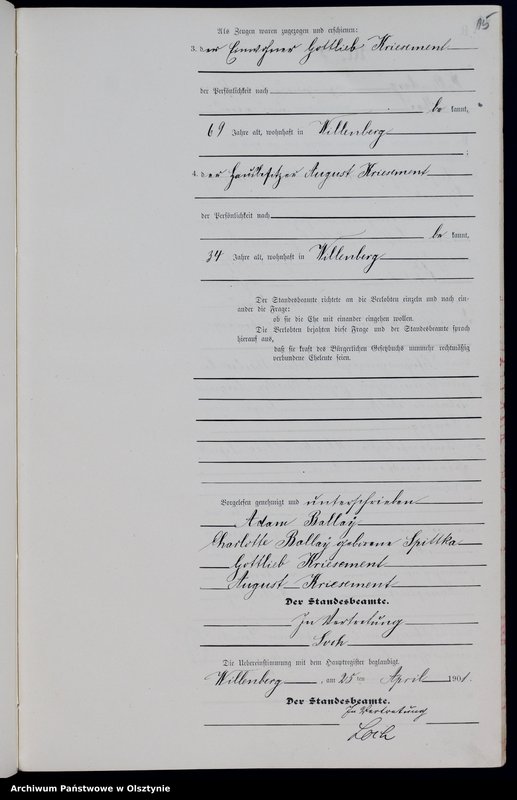 15
Als Zeugen waren zugezogen und erschienen:
3. der Einwohner Gottlieb Kriesement
der Persönlichkeit nach
be kannt,
69 Jahre alt, wohnhaft in Willenberg
;
4. der Hausbesitzer August Kriesement
der Persönlichkeit nach
be kannt,
34 Jahre alt, wohnhaft in Willenberg
Der Standesbeamte richtete an die Verlobten einzeln und nach ein-
ander die Frage:
ob sie die Ehe mit einander eingehen wollen.
Die Verlobten bejahten diese Frage und der Standesbeamte sprach
hierauf aus,
daß sie kraft des Bürgerlichen Gesetzbuchs nunmehr rechtmäßig
verbundene Eheleute seien.
Vorgelesen genehmigt und unterschrieben
Adam Ballay
Charlotte Ballay geborene Spittka
Gottlieb Kriesement
August Kriesement
Der Standesbeamte.
In Vertretung
Loch
Die Uebereinstimmung mit dem Hauptregister beglaubigt.
Willenberg, am 25 ten April 1901.
Der Standesbeamte.
In Vertretung
Loch
Archiwum Państwowe w Olsztynie